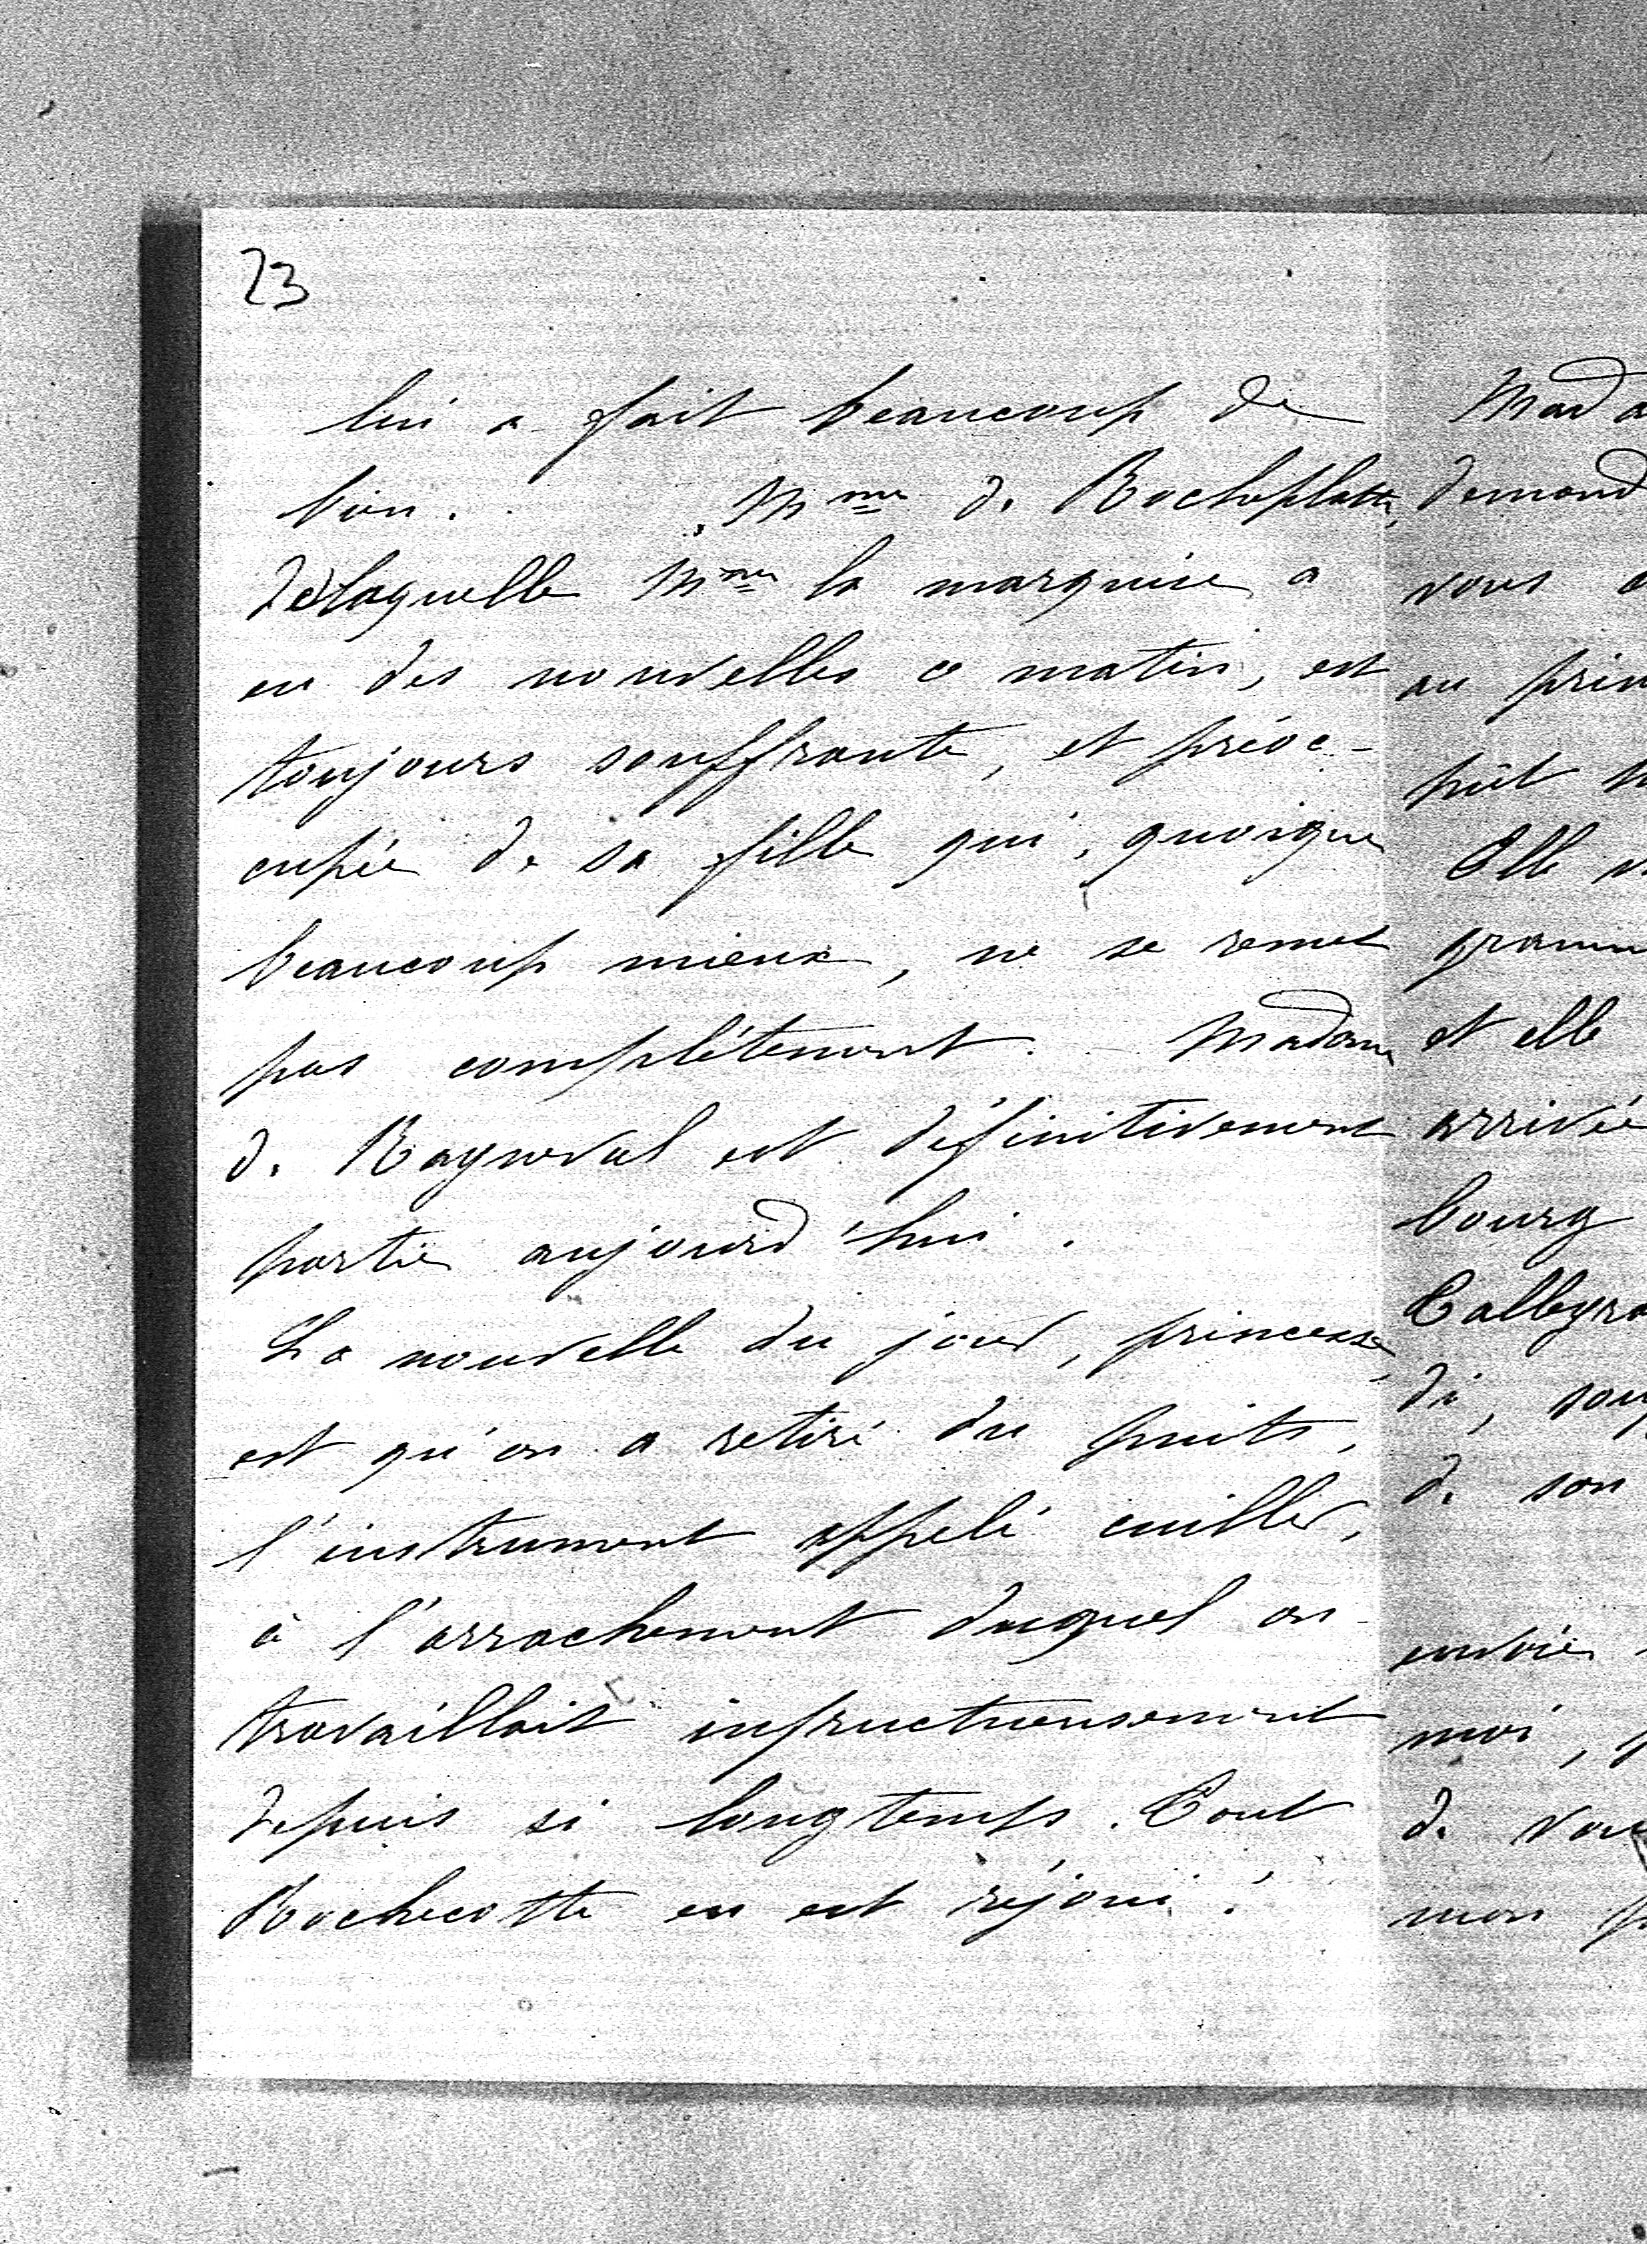 23
lui a fait beaucoup de
bien. Mme de Rocheplatte,
de laquelle Mme la marquise a
eu des nouvelles ce matin, est
toujours souffrante, et préoc-
cupée de sa fille qui, quoique
beaucoup mieux, ne se remet
pas complétement. - Madame
de Rayneval est définitivement
partie aujourd'hui.
La nouvelle du jour, princesse,
est qu'on a retiré du puits,
l'instrument appelé cuiller,
à l'arrachement duquel on
travaillait infructueusement
depuis si longtemps. Tout
Rochecotte en est réjoui!
Mada
demand
vous a
au prin
pût
Elle
gramm
et elle
arrivée
bourg
Talleyra
di, sou
de son
envoie
moi,
de vou
mon